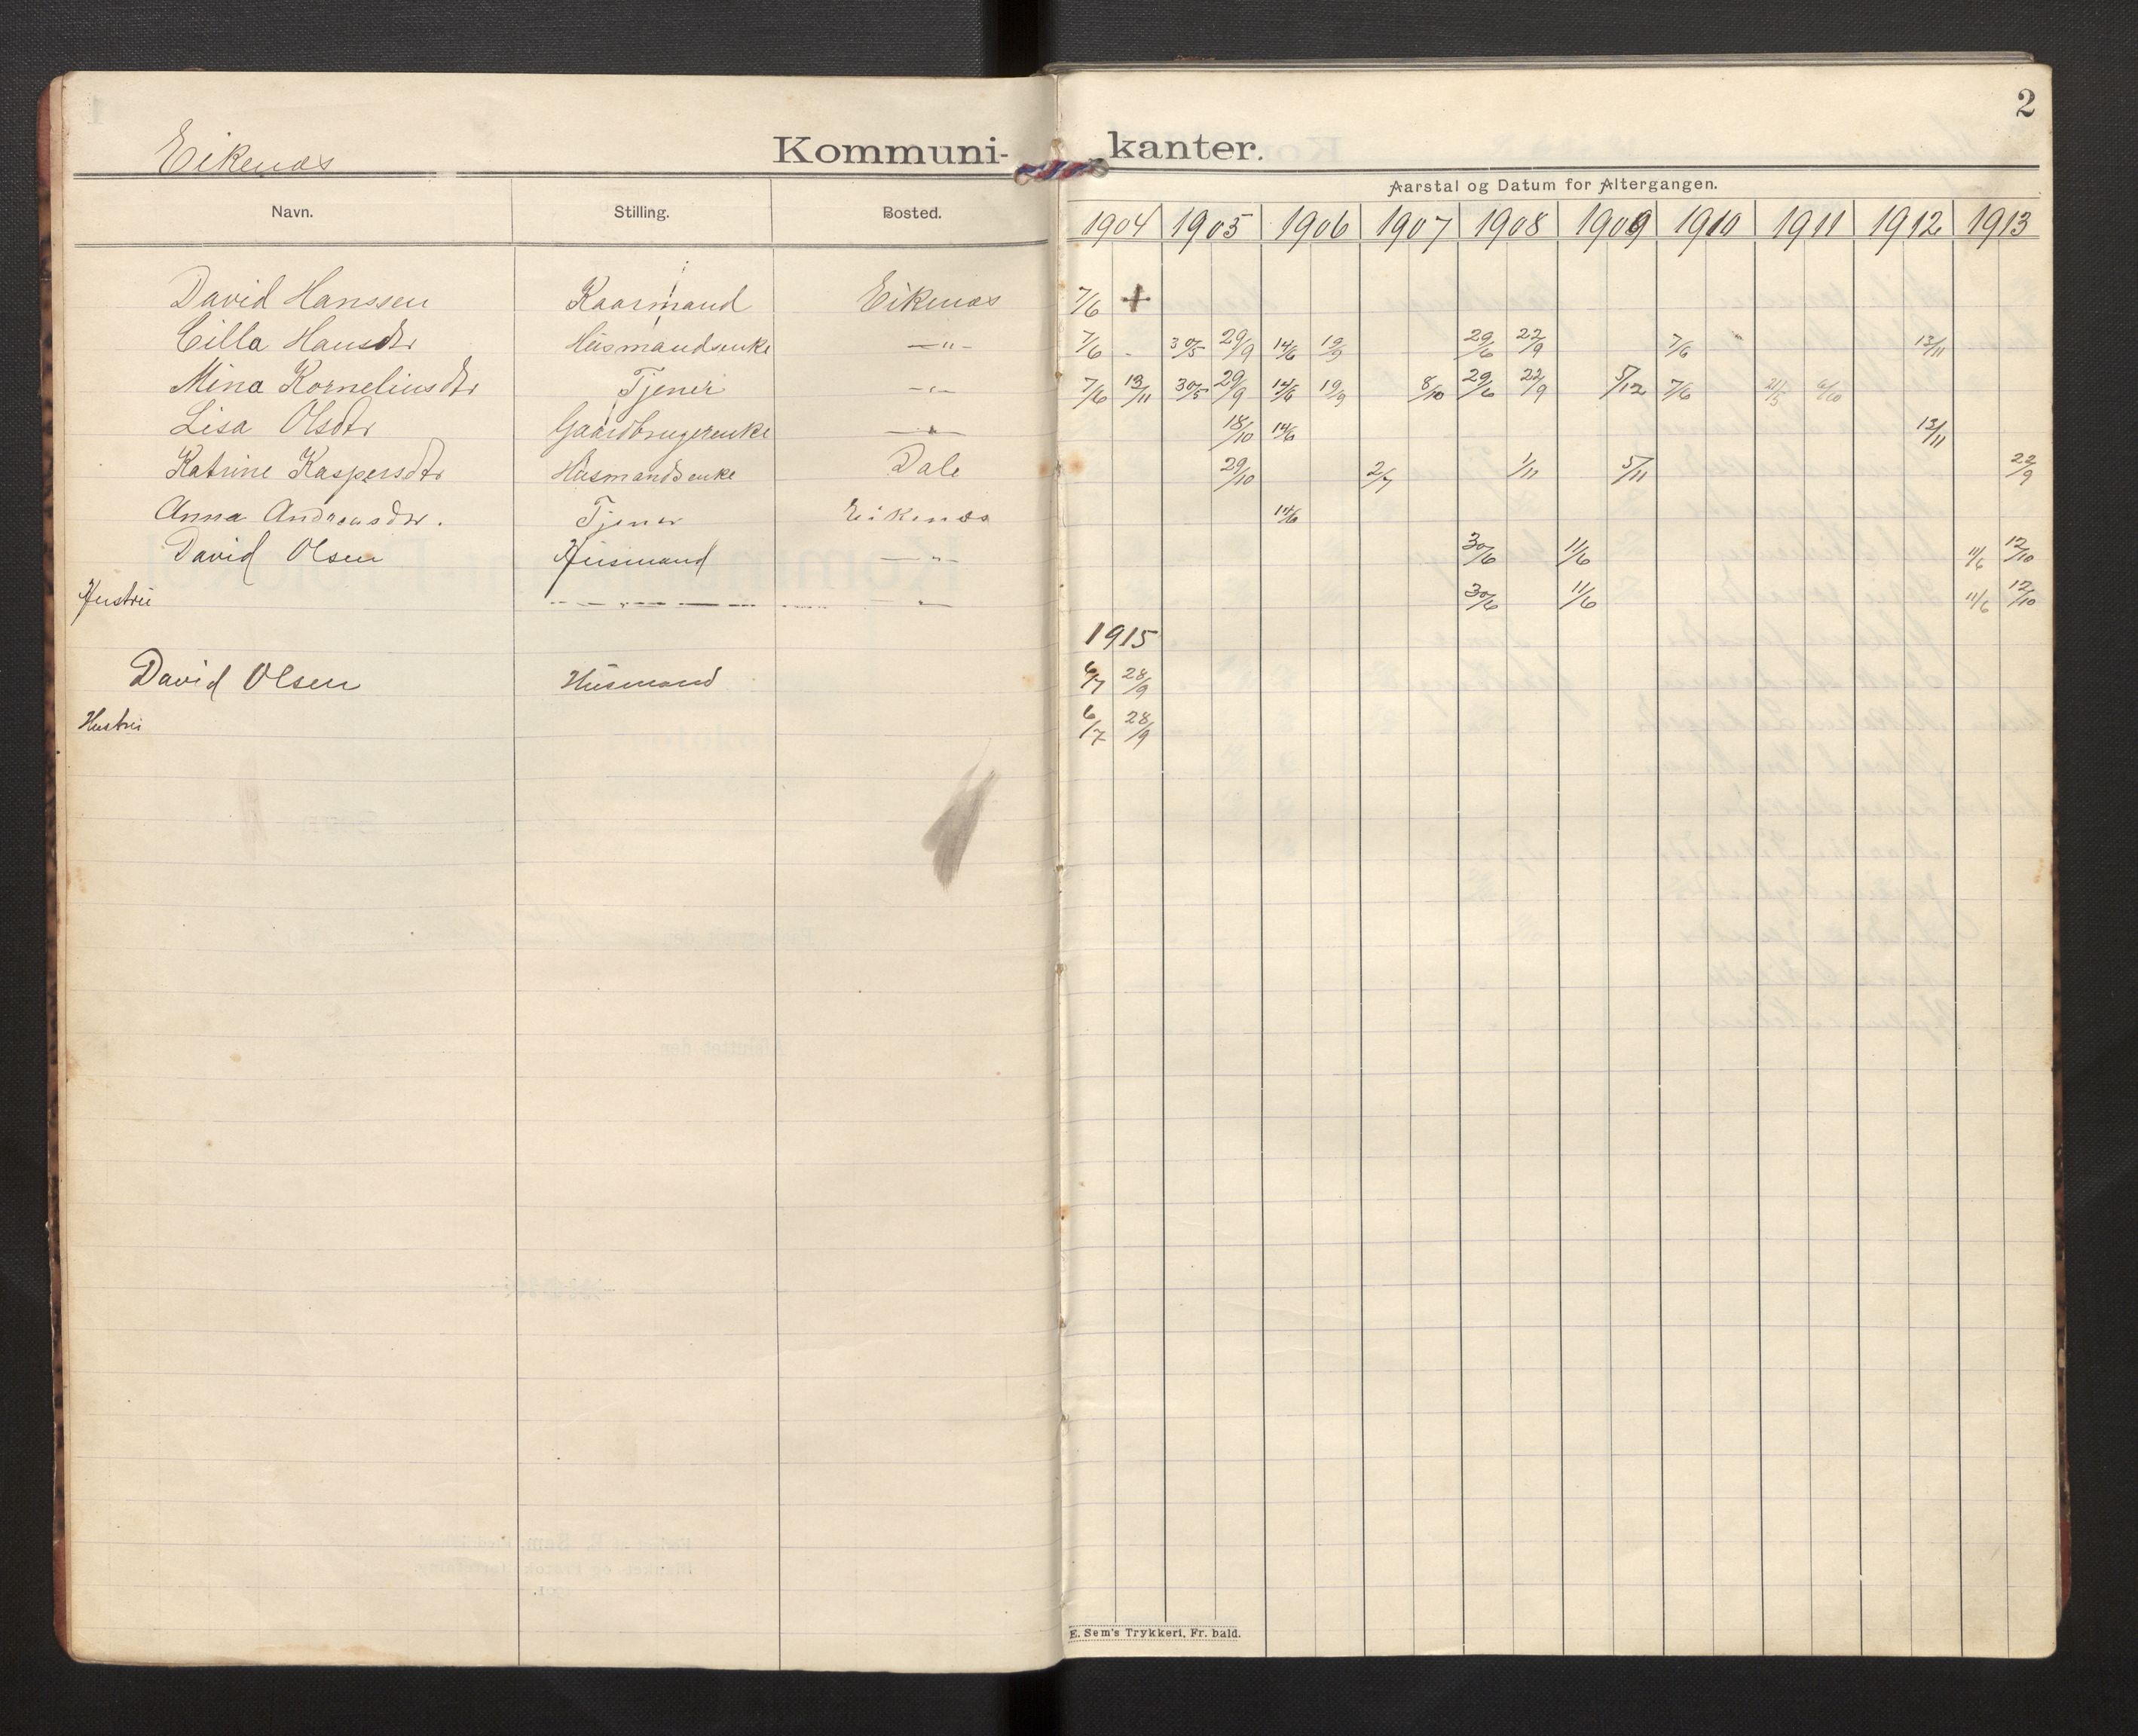 2
Eikenæs
Kommuni-kanter.
Aarstal og Datum for Altergangen.
Navn. Stilling. Bosted.
1904 1905 1906 1907 1908 1909 1910 1911 1912 1913
David Hanssen Kaarmand Eikenæs 7/6 +
Cilla Hansdtr Husmandsenke —"— 7/6 30/5 29/9 14/6 19/9 29/6 22/9 7/6 13/11
Mina Korneliusdtr Tjener —"— 7/6 13/11 30/5 29/9 14/6 19/9 8/10 29/6 22/9 5/12 7/6 21/5 6/10
Lisa Olsdtr Gaardbrugerenke —"— 18/10 14/6 13/11
Katrine Kaspersdtr Husmandsenke Dale 29/10 2/7 1/11 5/11 22/9
Anna Andreasdtr. Tjener Eikenæs 14/6
David Olsen Husmand —"— 30/6 11/6 11/6 12/10
Hustru —"— —"— 30/6 11/6 11/6 12/10
1915
David Olsen Husmand 6/7 28/9
Hustru 6/7 28/9
E. Sem's Trykkeri, Fr. hald.